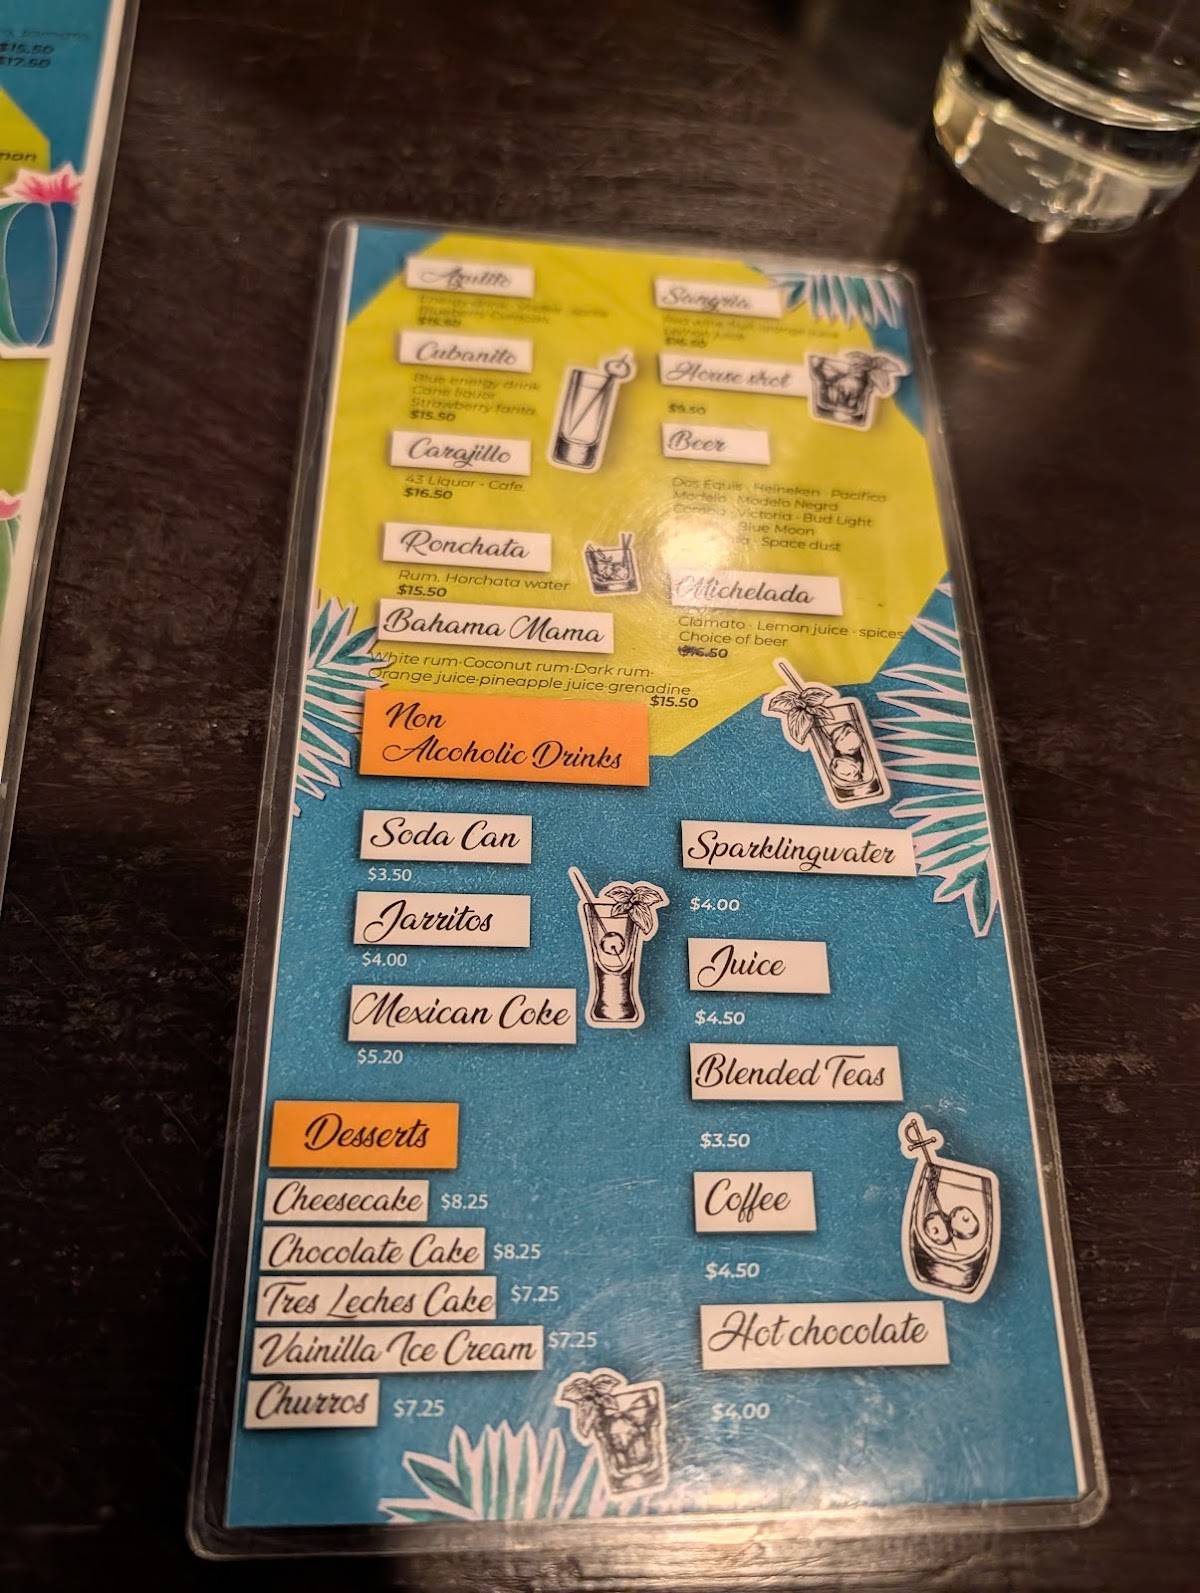 $15.50
$17.50
Azulito
Energy drink
Blueberry Curacao
$15.50
Cubanito
Blue energy drink
Cane liquor
Strawberry fanta
$15.50
Carajillo
43 Liquor - Cafe
$16.50
Ronchata
Rum. Horchata water
$15.50
Bahama Mama
White rum·Coconut rum·Dark rum·
Orange juice·pineapple juice·grenadine
$15.50
Sangria
Lemon juice
House shot
$9.50
Beer
Dos Equis · Heineken · Pacifico
Modelo · Modelo Negra
Corona · Victoria · Bud Light
Blue Moon
· Space dust
Michelada
Clamato · Lemon juice · spices
Choice of beer
$16.50
Non
Alcoholic Drinks
Soda Can
$3.50
Jarritos
$4.00
Mexican Coke
$5.20
Sparklingwater
$4.00
Juice
$4.50
Blended Teas
$3.50
Coffee
$4.50
Hot chocolate
$4.00
Desserts
Cheesecake $8.25
Chocolate Cake $8.25
Tres Leches Cake $7.25
Vainilla Ice Cream $7.25
Churros $7.25